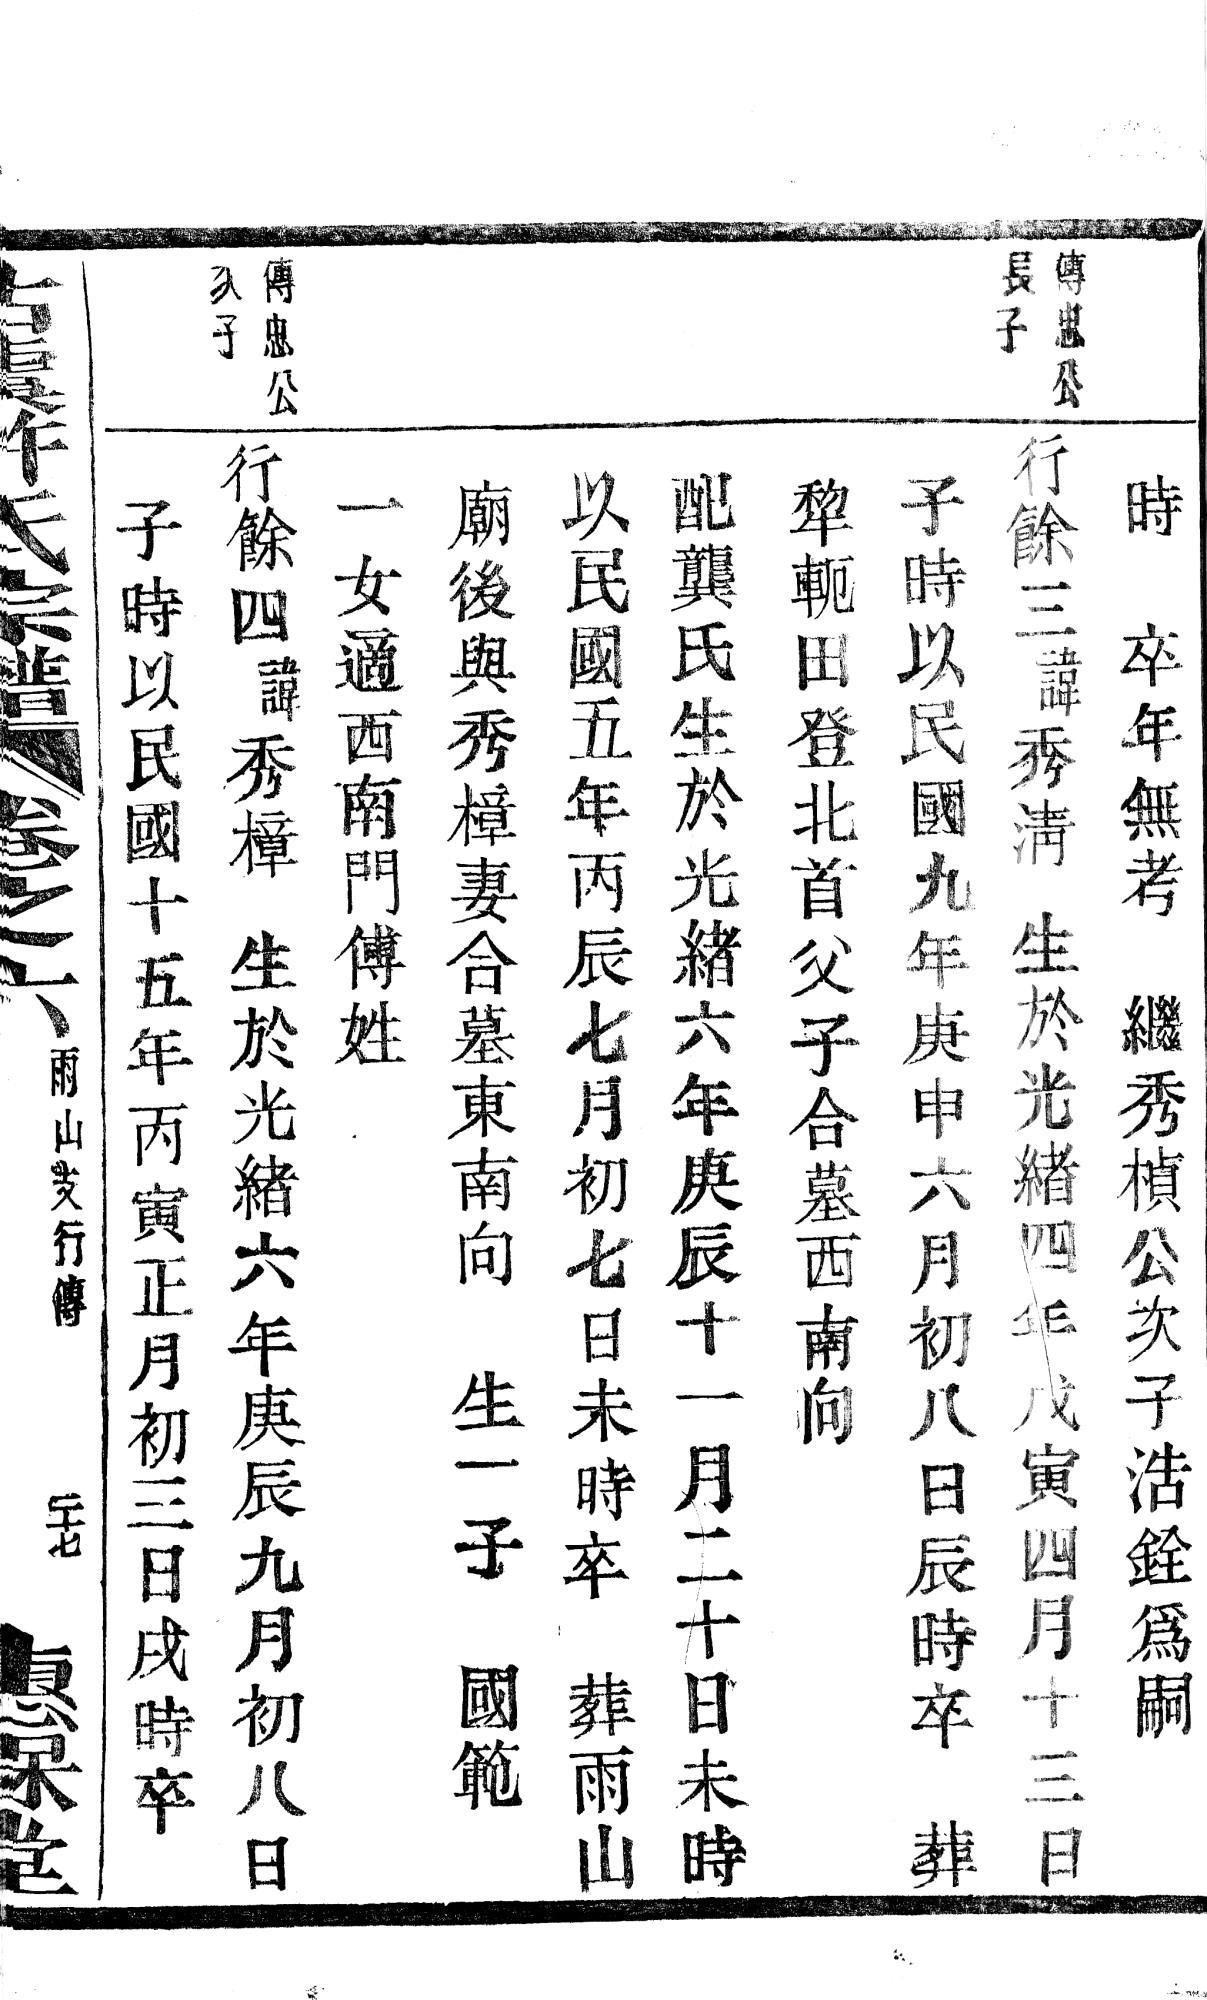 時　卒年無考　繼秀楨公次子浩銓爲嗣
傳忠公
長子
行餘三諱秀清　生於光緒四年戊寅四月十三日
子時以民國九年庚申六月初八日辰時卒　葬
犂軛田登北首父子合墓西南向
配龔氏生於光緒六年庚辰十一月二十日未時
以民國五年丙辰七月初七日未時卒　葬雨山
廟後與秀樟妻合墓東南向　生一子　國範
一女適西南門傅姓
傳忠公
次子
行餘四諱秀樟　生於光緒六年庚辰九月初八日
子時以民國十五年丙寅正月初三日戌時卒
氏宗譜
卷之
雨山支行傳
二十七